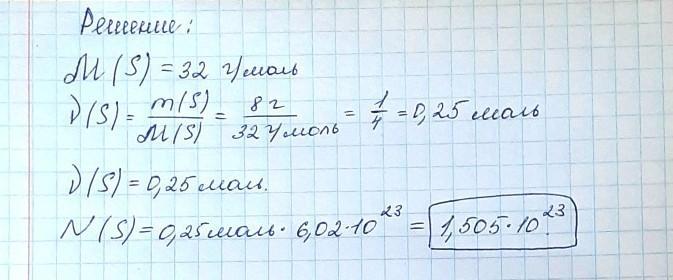 Решение:
M(S) = 32 г/моль
ν(S) = m(S)/M(S) = 8 г/32 г/моль = 1/4 = 0,25 моль
ν(S) = 0,25 моль.
N(S) = 0,25 моль · 6,02·10²³ = 1,505·10²³.